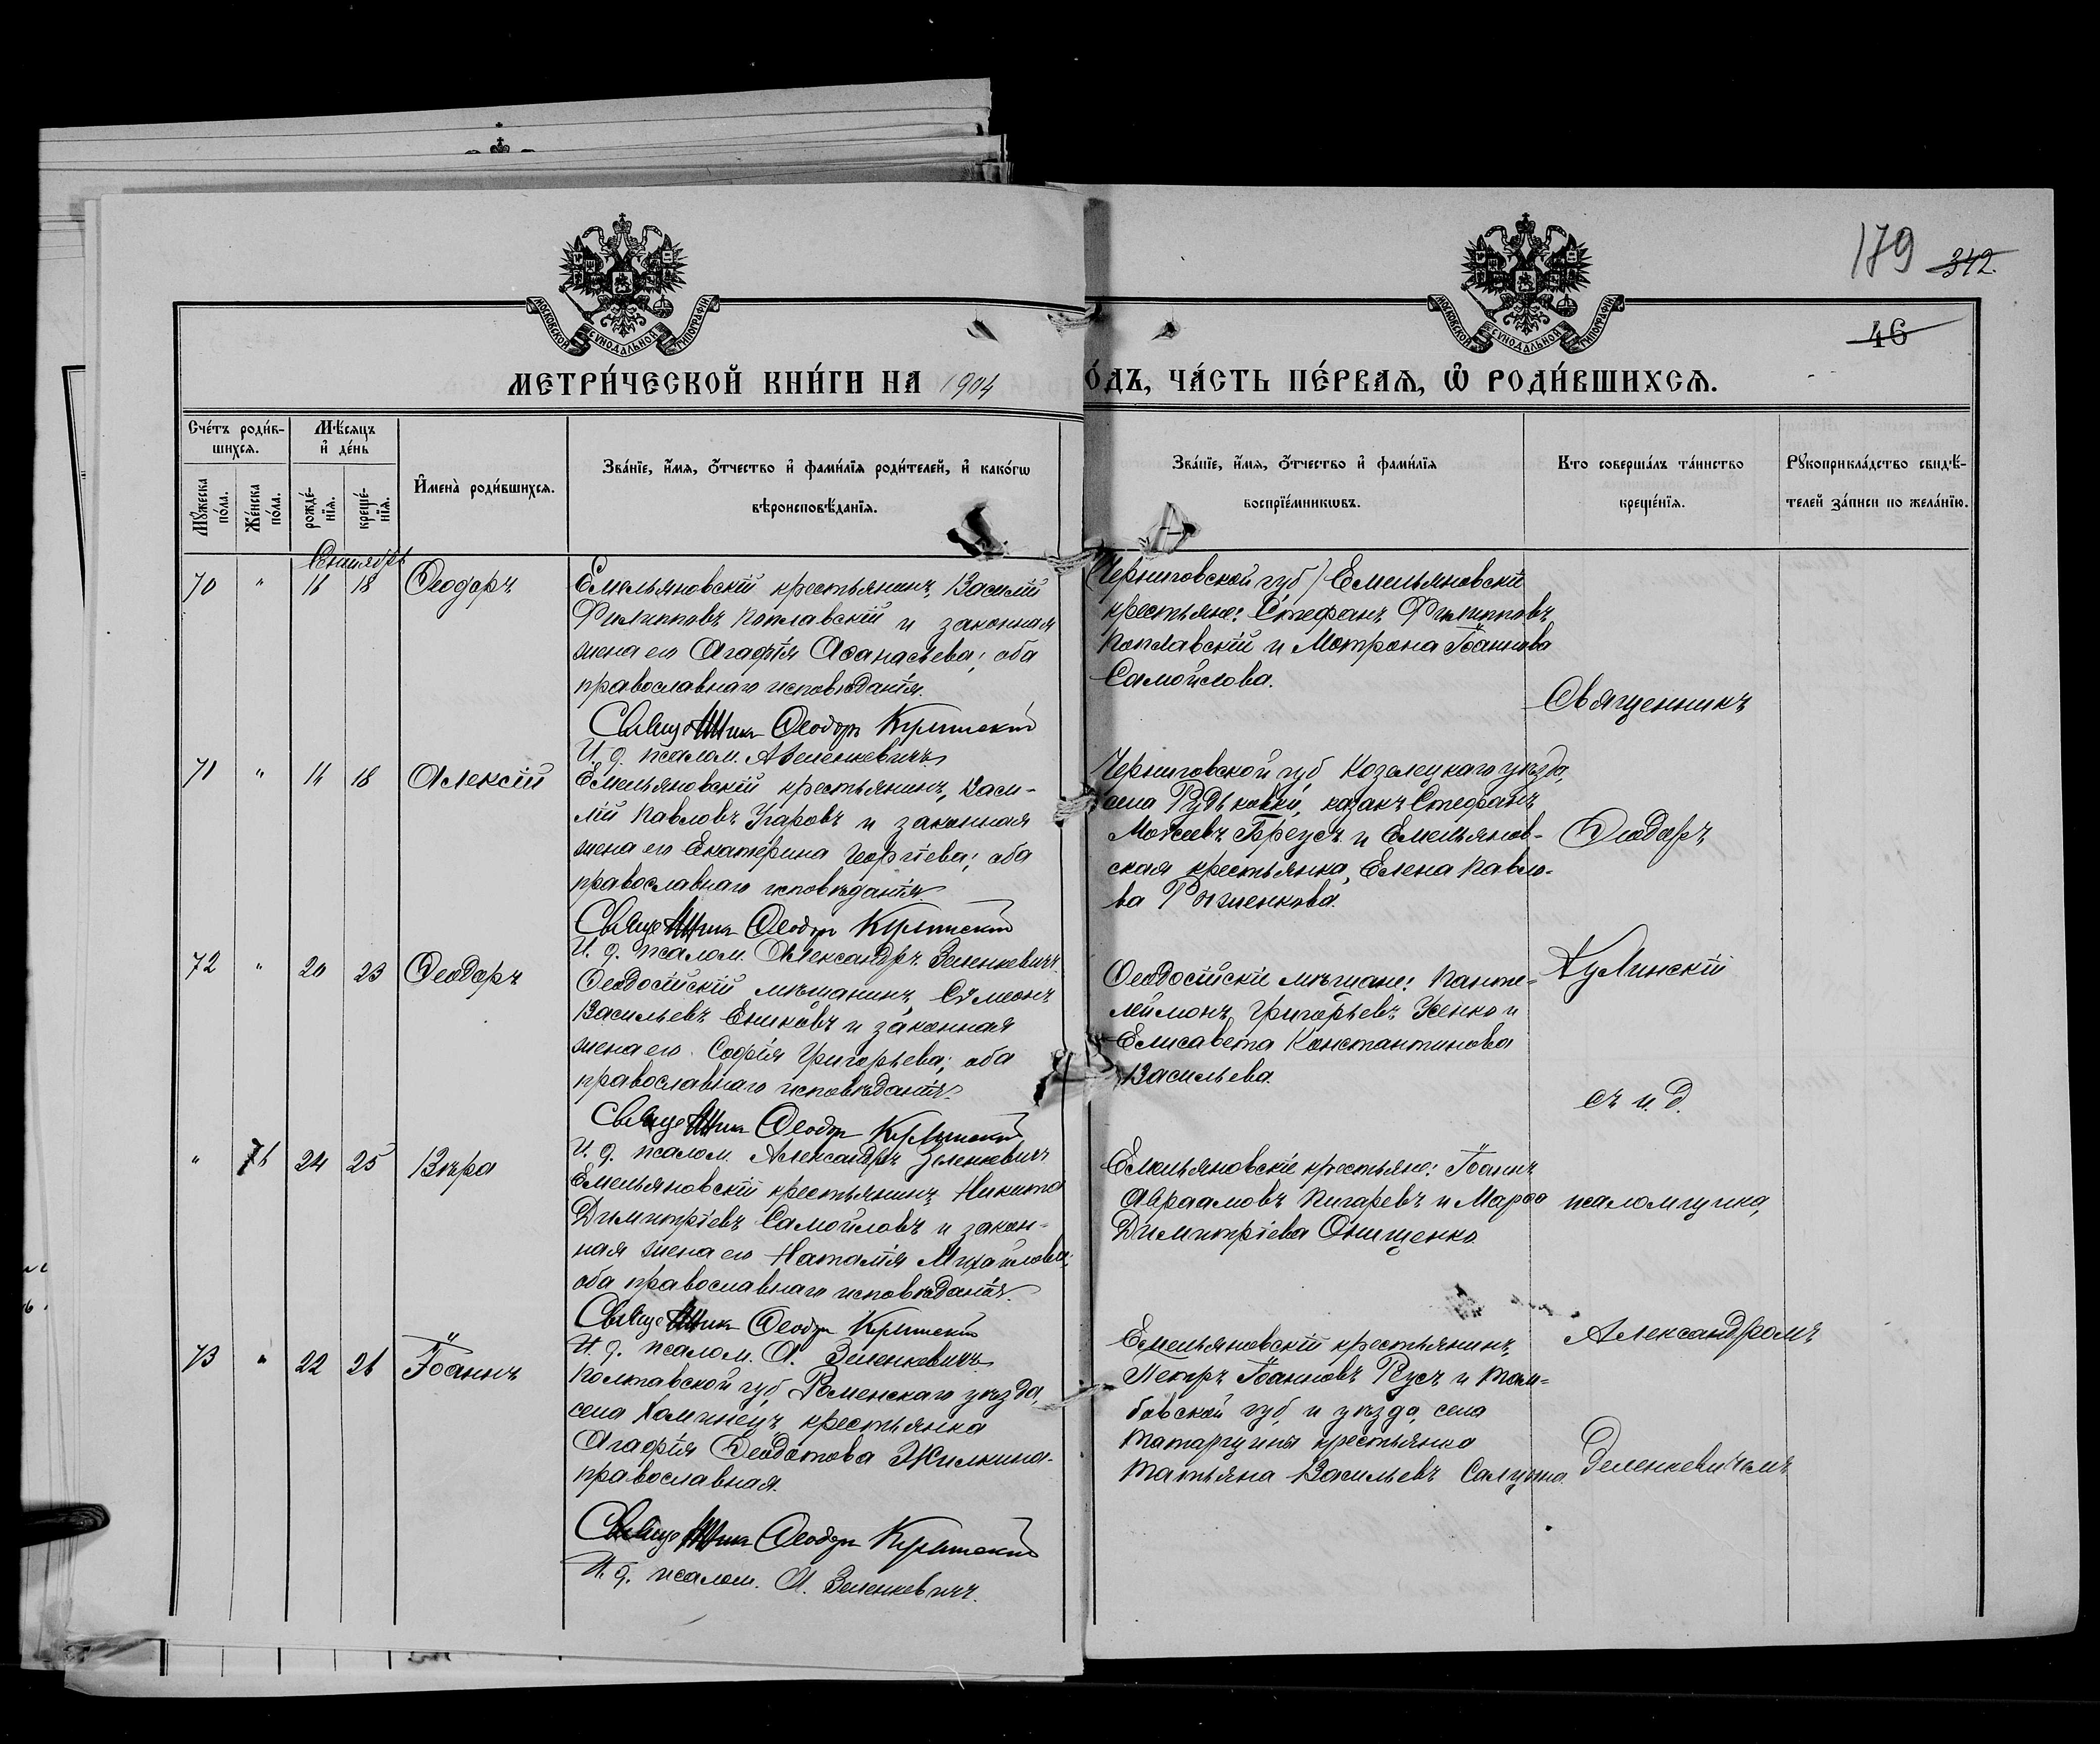 179 342.
46
МОСКОВСКОЙ СУНОДАЛЬНОЙ ТИПОГРАФІИ
МОСКОВСКОЙ СУНОДАЛЬНОЙ ТИПОГРАФІИ
МЕТРИ́ЧЕСКОЙ КНИ́ГИ НА 1904
О́ДЪ, ЧА́СТЬ ПЕ́РВАЯ, Ѡ РОДИ́ВШИХСЯ.
Сче́тъ роди́в-
шихся.
Мꙋ́жеска по́ла.
Же́нска по́ла.
Мѣ́сяцъ и де́нь
рожде́-
нїя.
креще́-
нїя.
Имена̀ роди́вшихся.
Зва́нїе, и́мя, ѻ́тчество и фами́лїя роди́телей, и како́гѡ
вѣроисповѣ́данїя.
Зва́нїе, и́мя, ѻ́тчество и фами́лїя
воспрїе́мникѡвъ.
Кто совершáлъ та́инство
креще́нїя.
Рꙋкоприкла́дство свидѣ́-
телей за́писи по жела́нїю.
Сентябрь
70 " 16 18 Ѳеодоръ
Емельяновскій крестьянинъ, Василій
Филипповъ Поплавскій и законная
жена его Агафія Аѳанасьева; оба
православнаго исповѣданія.
Священникъ Ѳеодоръ
И. д. псалом. А Зеленкевичъ
Черниговской губ) Емельяновскіе
крестьяне: Стефанъ Филипповъ
Поплавскій и Мотрона Іоаннова
Самойлова.
Священникъ
71 " 14 18 Алексій
Емельяновскій крестьянинъ, Васи-
лій Павловъ Угаровъ и законная
жена его Екатерина Георгіева; оба
православнаго исповѣданія.
Священникъ Ѳеодоръ
И. д. псалом. Александръ Зеленкевичъ
Черниговской губ Козелецкаго уѣзда,
села Рудьковки, казакъ Стефанъ
Моисеевъ Бреусъ и Емельянов-
ская крестьянка, Елена Павло-
ва Рыженкова.
Ѳеодоръ
72 " 20 23 Ѳеодоръ
Ѳеодосійскій мѣщанинъ, Сѵмеонъ
Васильевъ Ениковъ и законная
жена его Софія Григорьева; оба
православнаго исповѣданія.
Священникъ Ѳеодоръ
И. д. псалом Александръ Зеленкевичъ
Ѳеодосійскіе мѣщане: Панте-
леймонъ Григорьевъ Усенко и
Елисавета Константинова
Васильева.
съ и. д.
" 76 24 25 Вѣра
Емельяновскій крестьянинъ Никита
Димитріевъ Самойловъ и закон-
ная жена его Наталія Михайлова;
оба православнаго исповѣданія.
Священникъ Ѳеодоръ
И. д. псалом. А. Зеленкевичъ
Емельяновскіе крестьяне: Іоаннъ
Авраамовъ Пигаревъ и Марѳа
Димитріева Онищенко.
псаломщика,
73 " 22 26 Іоаннъ
Полтавской губ, Роменскаго уѣзда,
села Хоминецъ, крестьянка
Агафія Ѳеодотова Жилкина-
православная.
Священникъ Ѳеодоръ
И. д. псалом. А. Зеленкевичъ.
Емельяновскій крестьянинъ,
Петръ Іоанновъ Реусъ и Там-
бовской губ, и уѣзда, села
Татарщины крестьянка
Татьяна Васильевъ
Александромъ
Зеленкевичемъ